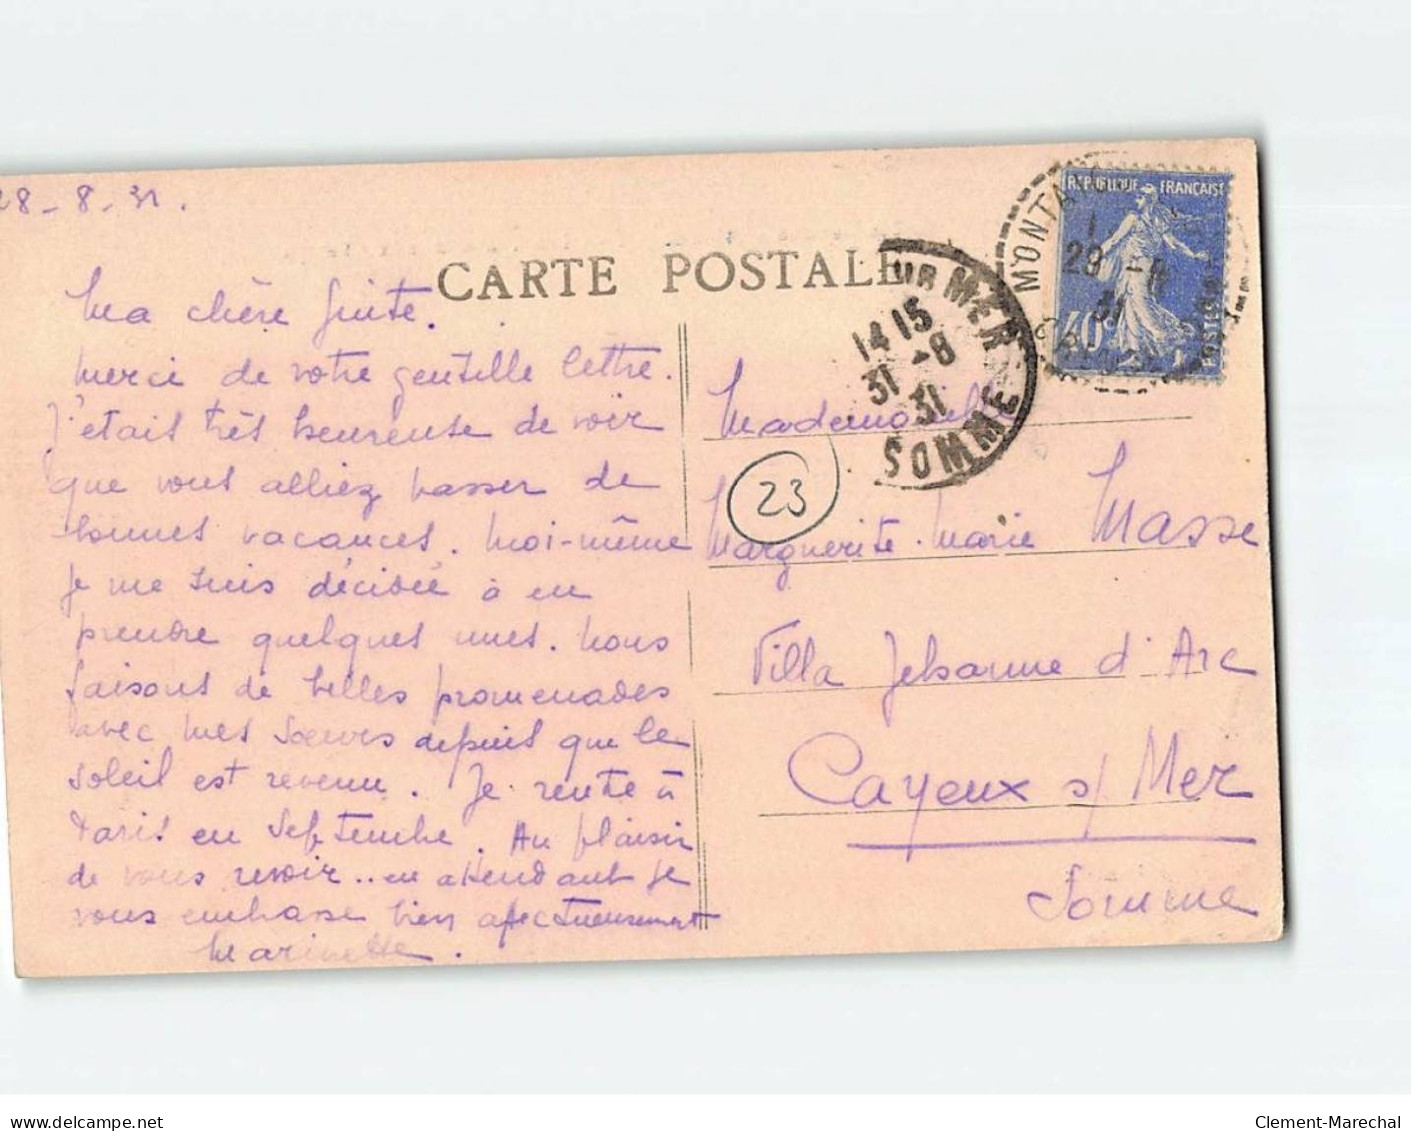 28-8-31.
CARTE POSTALE
Ma chère Guite.
Merci de votre gentille lettre.
J'étais très heureuse de voir
que vous alliez passer de
bonnes vacances. Moi-même
je me suis décidée à en
prendre quelques unes. Nous
faisons de belles promenades
avec mes soeurs depuis que le
soleil est revenu. Je rentre à
Paris en Septembre. Au plaisir
de vous revoir.. en attendant je
vous embrasse bien affectueusement
Marinette.
RÉPUBLIQUE FRANÇAISE
40c
POSTES
MONTA
29 -8
31
UR MER
14 15
31 -8
31
SOMME
23
Mademoiselle
Marguerite-Marie Masse
Villa Jehanne d'Arc
Cayeux s/ Mer
Somme
www.delcampe.net
Clement-Marechal